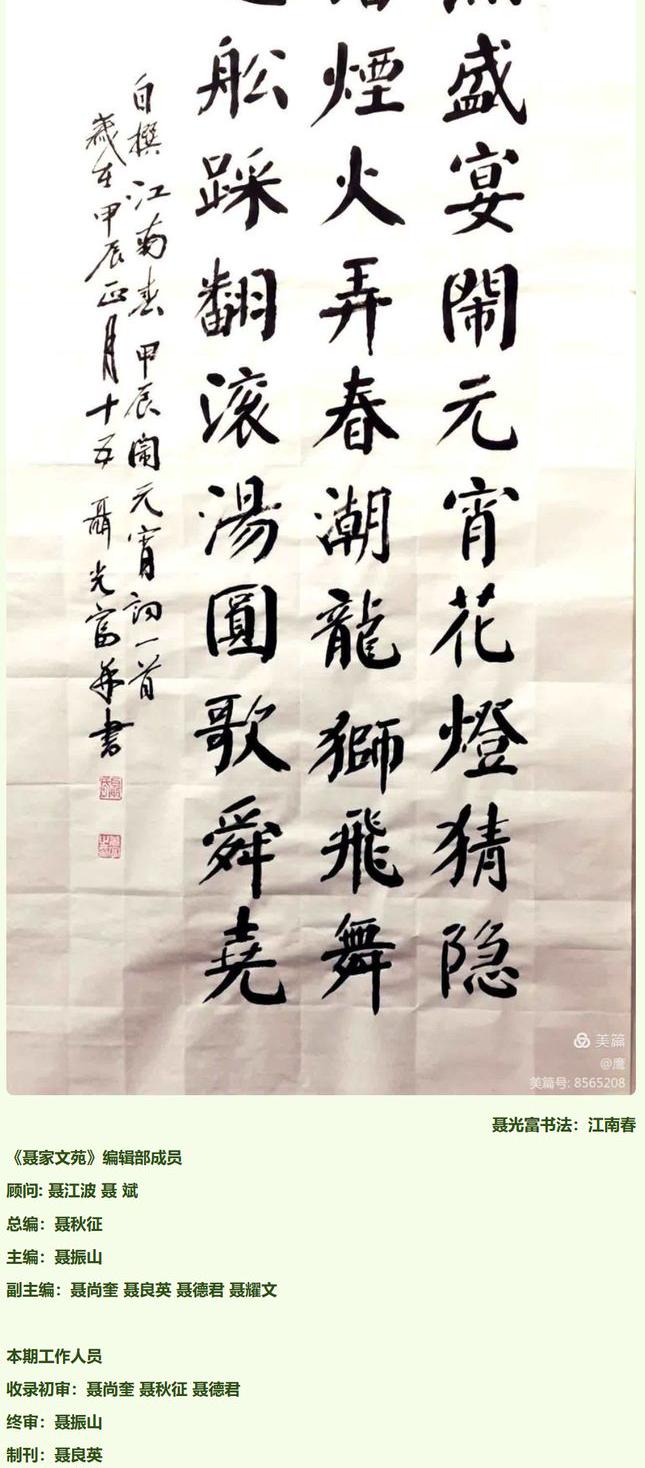 盛宴鬧元宵花燈猜隐
煙火弄春潮龍獅飛舞
舩踩翻滚湯圓歌舜堯
自撰江南春甲辰鬧元宵詞一首
歲在甲辰正月十五聶光富并書
美篇
@鹰
美篇号: 8565208
聂光富书法：江南春
《聂家文苑》编辑部成员
顾问: 聂江波 聂 斌
总编：聂秋征
主编：聂振山
副主编：聂尚奎 聂良英 聂德君 聂耀文
本期工作人员
收录初审：聂尚奎 聂秋征 聂德君
终审：聂振山
制刊：聂良英